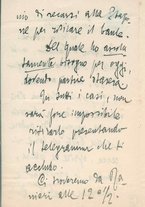 mo di recarsi alla Stazio-
ne per ritirare il baule.
Del quale ho assolu-
tamente bisogno per oggi,
dovendo partire stasera
In tutti i casi, non
sarà forse impossibile
ritirarlo presentando
il telegramma che ti
accludo.
Ci troveremo da
nieri alle 12 e ½.